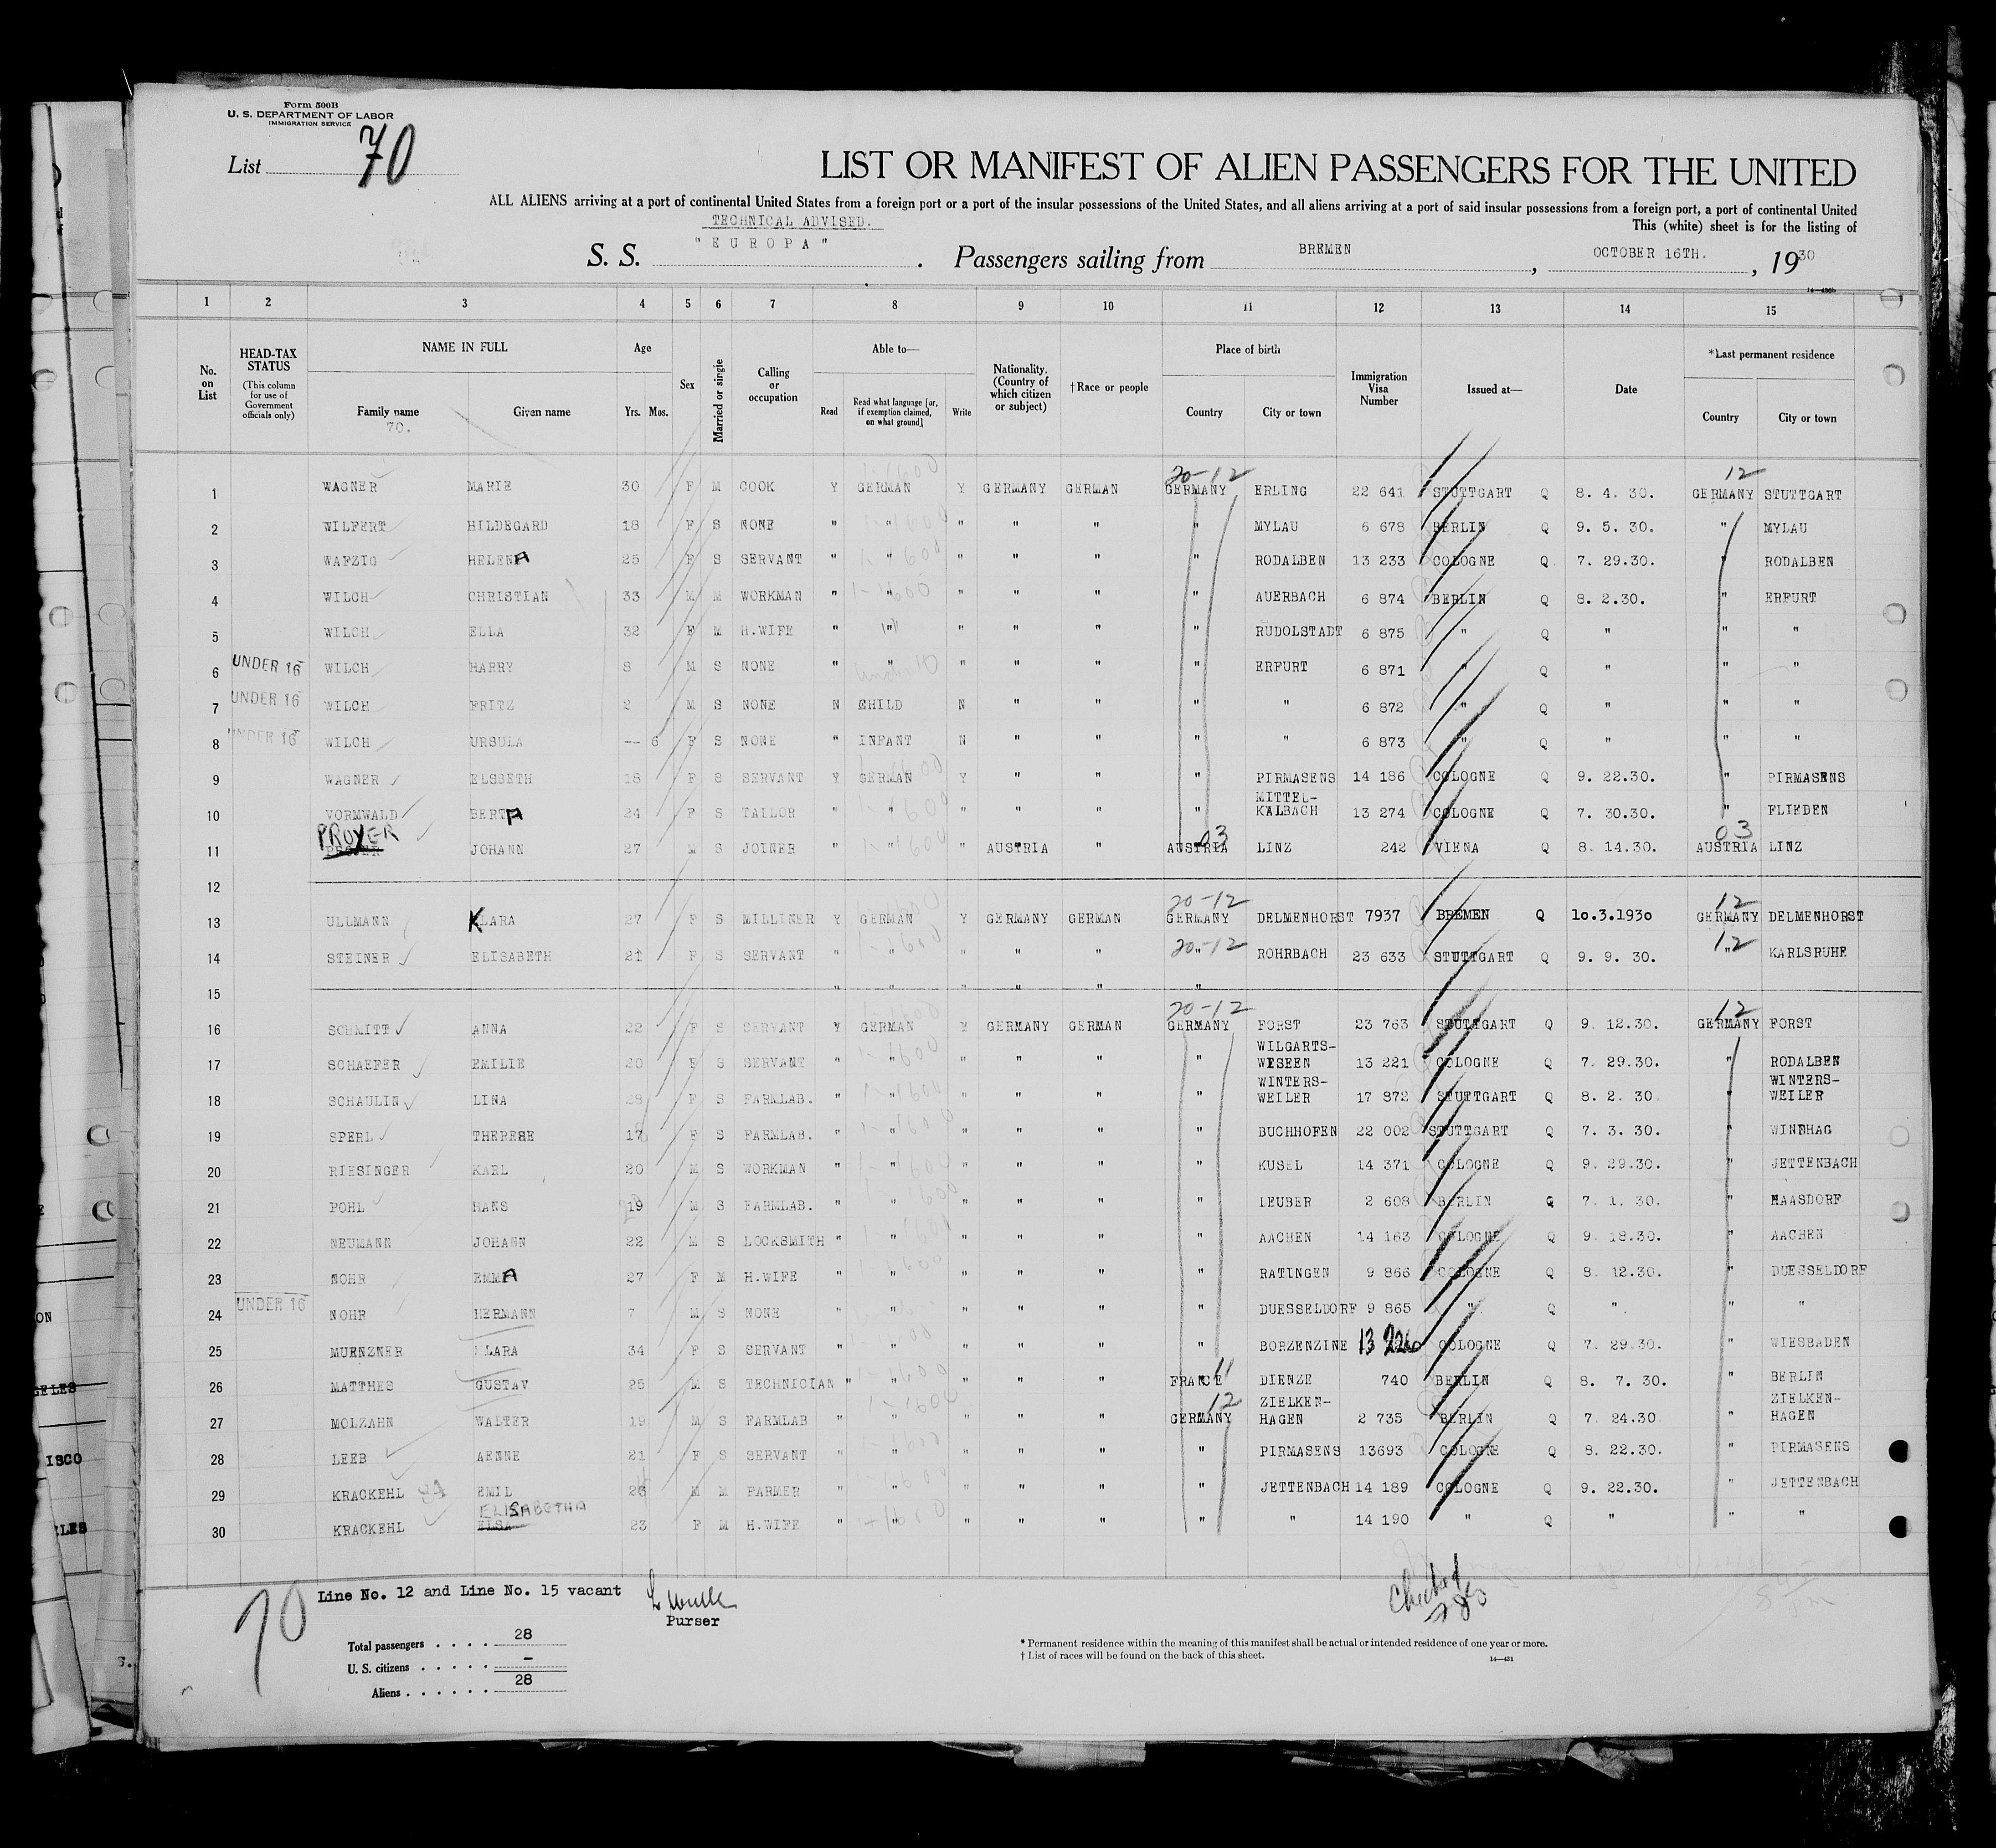 Form 500B
U. S. DEPARTMENT OF LABOR
IMMIGRATION SERVICE
List 70
LIST OR MANIFEST OF ALIEN PASSENGERS FOR THE UNITED
ALL ALIENS arriving at a port of continental United States from a foreign port or a port of the insular possessions of the United States, and all aliens arriving at a port of said insular possessions from a foreign port, a port of continental United
This (white) sheet is for the listing of
TECHNICAL ADVISED.
S. S. "EUROPA". Passengers sailing from BREMEN, OCTOBER 16TH., 1930
1 2 3 4 5 6 7 8 9 10 11 12 13 14 15
No. on List
HEAD-TAX STATUS
(This column for use of Government officials only)
NAME IN FULL
Family name
70.
Given name
Age
Yrs. Mos.
Sex
Married or single
Calling or occupation
Able to—
Read
Read what language [or, if exemption claimed, on what ground]
Write
Nationality. (Country of which citizen or subject)
†Race or people
Place of birth
Country
City or town
Immigration Visa Number
Issued at—
Date
*Last permanent residence
Country
City or town
20-12 12
1 WAGNER MARIE 30 F M COOK Y GERMAN Y GERMANY GERMAN GERMANY ERLING 22 641 STUTTGART Q 8. 4. 30. GERMANY STUTTGART
2 WILFERT HILDEGARD 18 F S NONE " " " " " " MYLAU 6 678 BERLIN Q 9. 5. 30. " MYLAU
3 WAFZIG HELENA 25 F S SERVANT " " " " " " RODALBEN 13 233 COLOGNE Q 7. 29.30. " RODALBEN
4 WILCH CHRISTIAN 33 M M WORKMAN " " " " " " AUERBACH 6 874 BERLIN Q 8. 2.30. " ERFURT
5 WILCH ELLA 32 F M H.WIFE " " " " " " RUDOLSTADT 6 875 " Q " " "
6 UNDER 16 WILCH HARRY 8 M S NONE " " " " " " ERFURT 6 871 " Q " " "
7 UNDER 16 WILCH FRITZ 2 M S NONE N CHILD N " " " " 6 872 " Q " " "
8 UNDER 16 WILCH URSULA -- 6 F S NONE " INFANT N " " " " 6 873 " Q " " "
9 WAGNER ELSBETH 18 F S SERVANT Y GERMAN Y " " " PIRMASENS 14 186 COLOGNE Q 9. 22.30. " PIRMASENS
10 VORMWALD BERTA 24 F S TAILOR " " " " " " MITTEL-KALBACH 13 274 COLOGNE Q 7. 30.30. " FLIEDEN
PROYER 03 03
11 JOHANN 27 M S JOINER " " " AUSTRIA " AUSTRIA LINZ 242 VIENA Q 8. 14.30. AUSTRIA LINZ
12
20-12 12
13 ULLMANN KLARA 27 F S MILLINER Y GERMAN Y GERMANY GERMAN GERMANY DELMENHORST 7937 BREMEN Q 10.3.1930 GERMANY DELMENHORST
20-12 12
14 STEINER ELISABETH 21 F S SERVANT " " " " " " ROHRBACH 23 633 STUTTGART Q 9. 9. 30. " KARLSRUHE
15 " " " " " "
20-12 12
16 SCHMITT ANNA 22 F S SERVANT Y GERMAN Y GERMANY GERMAN GERMANY FORST 23 763 STUTTGART Q 9. 12.30. GERMANY FORST
17 SCHAEFER EMILIE 20 F S SERVANT " " " " " " WILGARTS-WESEEN 13 221 COLOGNE Q 7. 29.30. " RODALBEN
18 SCHAULIN LINA 28 F S FARMLAB. " " " " " " WINTERS-WEILER 17 872 STUTTGART Q 8. 2. 30. " WINTERS-WEILER
19 SPERL THERESE 17 F S FARMLAB. " " " " " " BUCHHOFEN 22 002 STUTTGART Q 7. 3. 30. " WINDHAG
20 RIESINGER KARL 20 M S WORKMAN " " " " " " KUSEL 14 371 COLOGNE Q 9. 29.30. " JETTENBACH
21 POHL HANS 19 M S FARMLAB. " " " " " " LEUBER 2 608 BERLIN Q 7. 1. 30. " MAASDORF
22 NEUMANN JOHANN 22 M S LOCKSMITH " " " " " " AACHEN 14 163 COLOGNE Q 9. 18.30. " AACHEN
23 NOHR EMMA 27 F M H.WIFE " " " " " " RATINGEN 9 866 COLOGNE Q 8. 12.30. " DUESSELDORF
24 UNDER 16 NOHR HERMANN 7 M S NONE " " " " " " DUESSELDORF 9 865 " Q " " "
25 MUENZNER KLARA 34 F S SERVANT " " " " " " BORZENZINE 13 226 COLOGNE Q 7. 29.30. " WIESBADEN
11
26 MATTHES GUSTAV 25 M S TECHNICIAN " " " " " FRANCE DIENZE 740 BERLIN Q 8. 7. 30. " BERLIN
12
27 MOLZAHN WALTER 19 M S FARMLAB " " " " " GERMANY ZIELKEN-HAGEN 2 735 BERLIN Q 7. 24.30. " ZIELKEN-HAGEN
28 LEEB AENNE 21 F S SERVANT " " " " " " PIRMASENS 13693 COLOGNE Q 8. 22.30. " PIRMASENS
29 KRACKEHL EMIL 26 M M FARMER " " " " " " JETTENBACH 14 189 COLOGNE Q 9. 22.30. " JETTENBACH
ELISABETHA
30 KRACKEHL ELSA 23 F M H.WIFE " " " " " " " 14 190 " Q " " "
70
Line No. 12 and Line No. 15 vacant
Purser
Checked
Total passengers . . . . 28
U. S. citizens . . . . . –
Aliens . . . . . . 28
* Permanent residence within the meaning of this manifest shall be actual or intended residence of one year or more.
† List of races will be found on the back of this sheet.
14—431